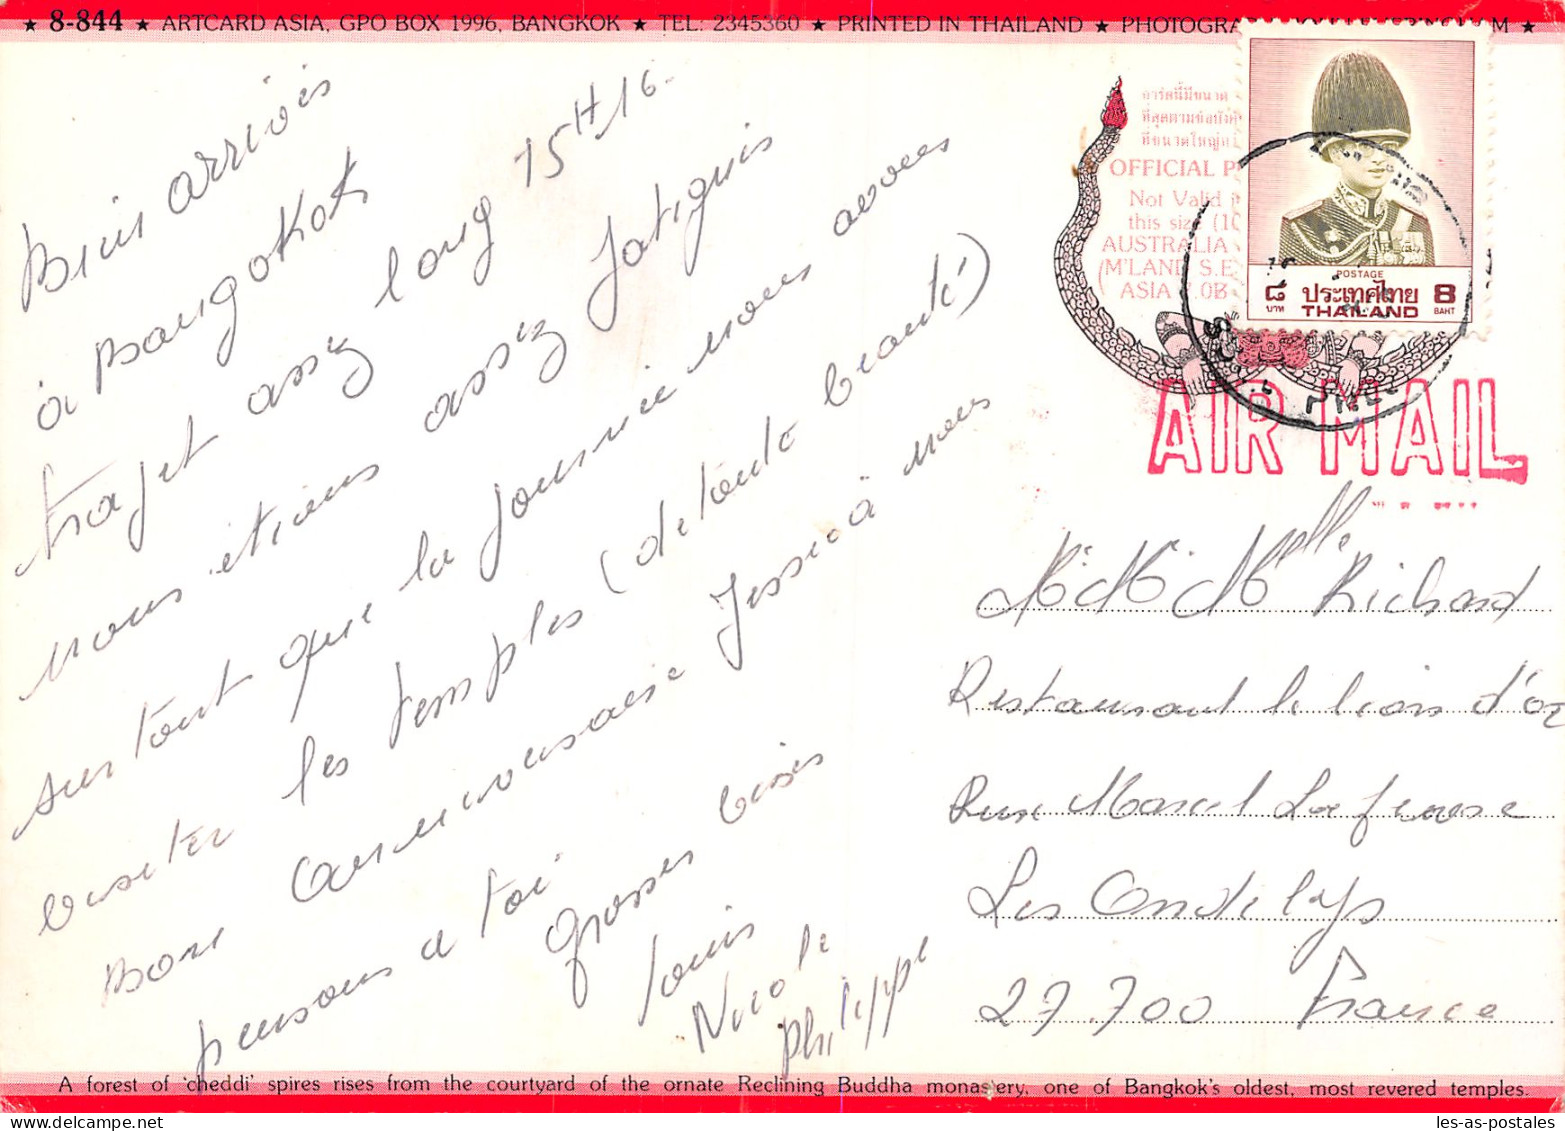 ★ 8-844 ★ ARTCARD ASIA, GPO BOX 1996, BANGKOK ★ TEL: 2345360 ★ PRINTED IN THAILAND ★ PHOTOGRA
M ★
Bien arrivés
à Bangokok
trajet assez long 15H16
nous étions assez fatigués
surtout que la journée nous avons
visiter les temples (de toute beauté)
Bon anniversaire Jessica nous
pensons a toi
grosses bises
Louis
Nicole
Philippe
การ์ดนี้มีขนาด
OFFICIAL P
Not Valid i
this size (10
AUSTRALIA
(M'LAND S.E
ASIA
POSTAGE
๘ บาท ประเทศไทย 8 BAHT
THAILAND
AIR MAIL
M. M. Melle Richard
Restaurant le lion d'or
Rue Marcel Lefevre
Les Andelys
27.700 France
A forest of 'cheddi' spires rises from the courtyard of the ornate Reclining Buddha monastery, one of Bangkok's oldest, most revered temples.
les-as-postales